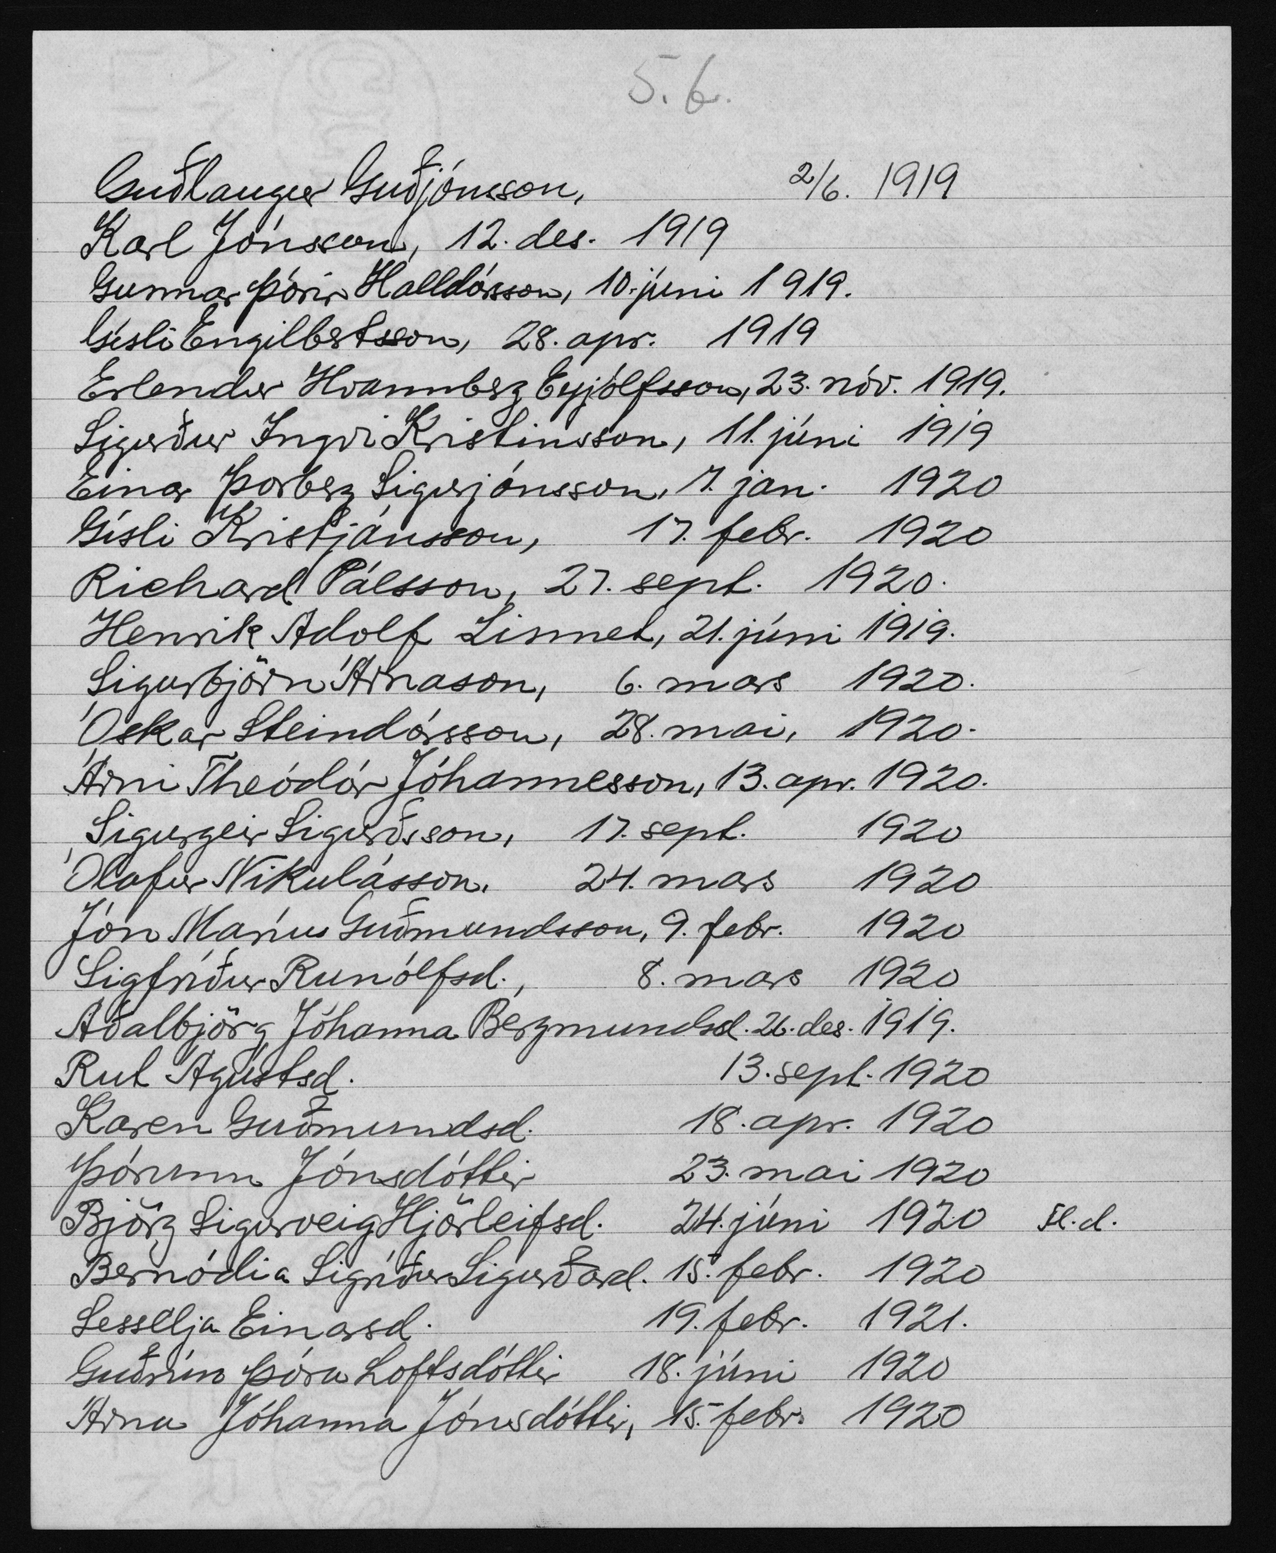 5. b.
Guðlaugur Guðjónsson, 2/6. 1919
Karl Jónsson, 12. des. 1919
Gunnar Þórir Halldórsson, 10. júni 1919.
Gísli Engilbertsson, 28. apr. 1919
Erlendur Hvannberg Eyjólfsson, 23. nóv. 1919.
Sigurður Ingvi Kristinsson, 11. júni 1919
Einar Þorberg Sigurjónsson, 7. jan. 1920
Gísli Kristjánsson, 17. febr. 1920
Richard Pálsson, 27. sept. 1920.
Henrik Adolf Linnet, 21. júni 1919.
Sigurbjörn Árnason, 6. mars 1920.
Óskar Steindórsson, 28. mai, 1920.
Árni Theódór Jóhannesson, 13. apr. 1920.
Sigurgeir Sigurðsson, 17. sept. 1920
Ólafur Nikulásson. 24. mars 1920
Jón Maríus Guðmundsson, 9. febr. 1920
Sigfríður Runólfsd., 8. mars 1920
Aðalbjörg Jóhanna Bergmundsd. 26. des. 1919.
Rut Ágústsd. 13. sept. 1920
Karen Guðmundsd. 18. apr. 1920
Þórunn Jónsdóttir 23. mai 1920
Björg Sigurveig Hjörleifsd. 24. júni 1920
Bernódia Sigríður Sigurðard. 15. febr. 1920
Sesselja Einarsd. 19. febr. 1921.
Guðrún Þóra Loftsdóttir 18. júni 1920
Arna Jóhanna Jónsdóttir, 15. febr. 1920